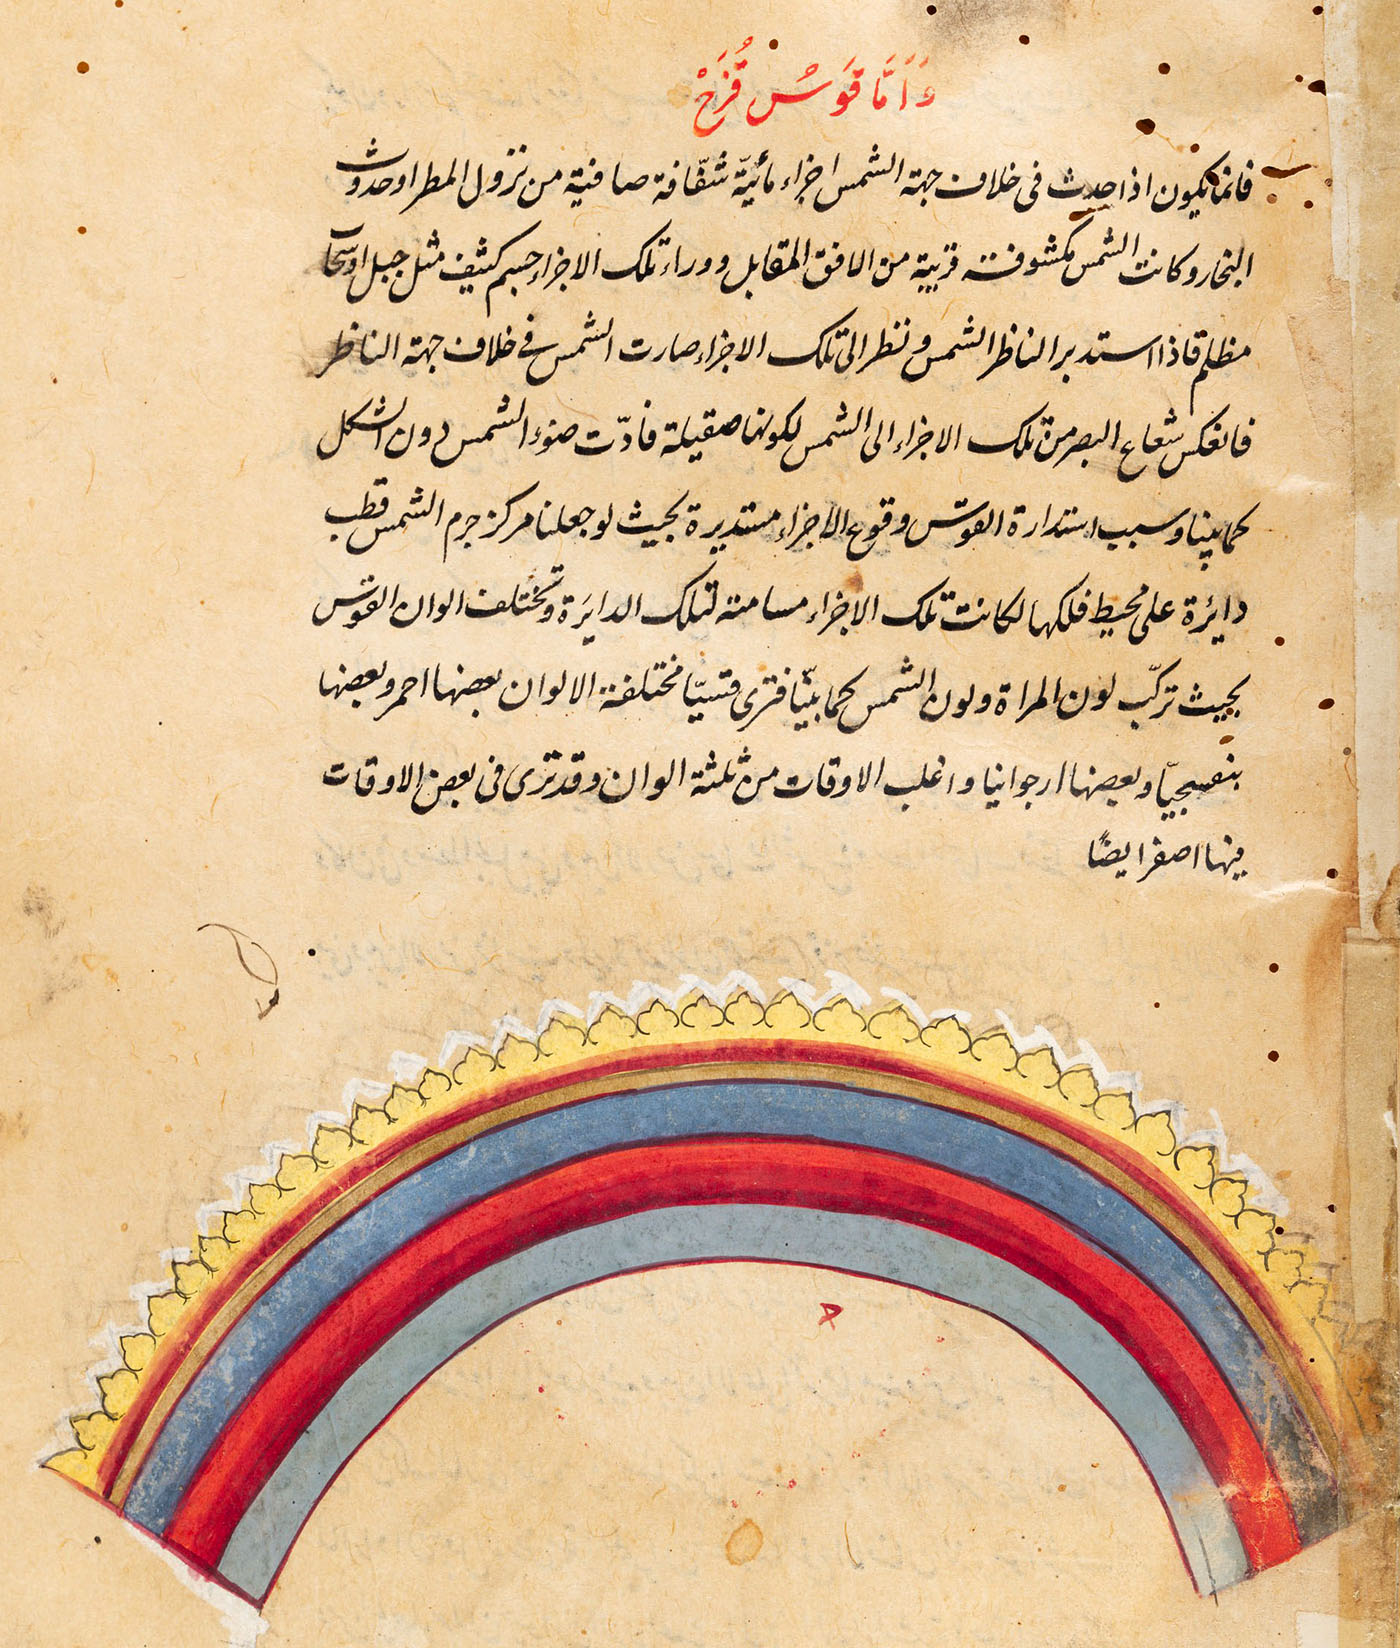 وَاَمَّا قَوَسُ قُزَحْ
فانما يكون اذا حدث فى خلاف جهة الشمس اجزاء مائيّة شفّافة صافية من نزول المطر او حدوث
البخار و كانت الشمس مكشوفة قريبة من الافق المقابل و وراء تلك الاجزاء جسم كثيف مثل جبل او سحاب
مظلم فاذا استدبر الناظر الشمس و نظر الى تلك الاجزاء صارت الشمس فى خلاف جهة الناظر
فانعكس شعاع البصر من تلك الاجزاء الى الشمس لكونها صقيلة فادّت ضوء الشمس دون الشكل
كما بينا و سبب استدارة القوس وقوع الاجزاء مستديرة بحيث لو جعلنا مركز جرم الشمس قطب
دايرة على محيط فلكها لكانت تلك الاجزاء مسامتة لتلك الدايَرة و تختلف الوان القوس
بحيث تركّب لون المراة و لون الشمس كما بيّنّا فترى قسيّا مختلفة الالوان بعضها احمر و بعضها
بنفسجيّا و بعضها ارجوانيا و اغلب الاوقات من ثلثة الوان و قد ترى فى بعض الاوقات
بينها اصفر ايضًا